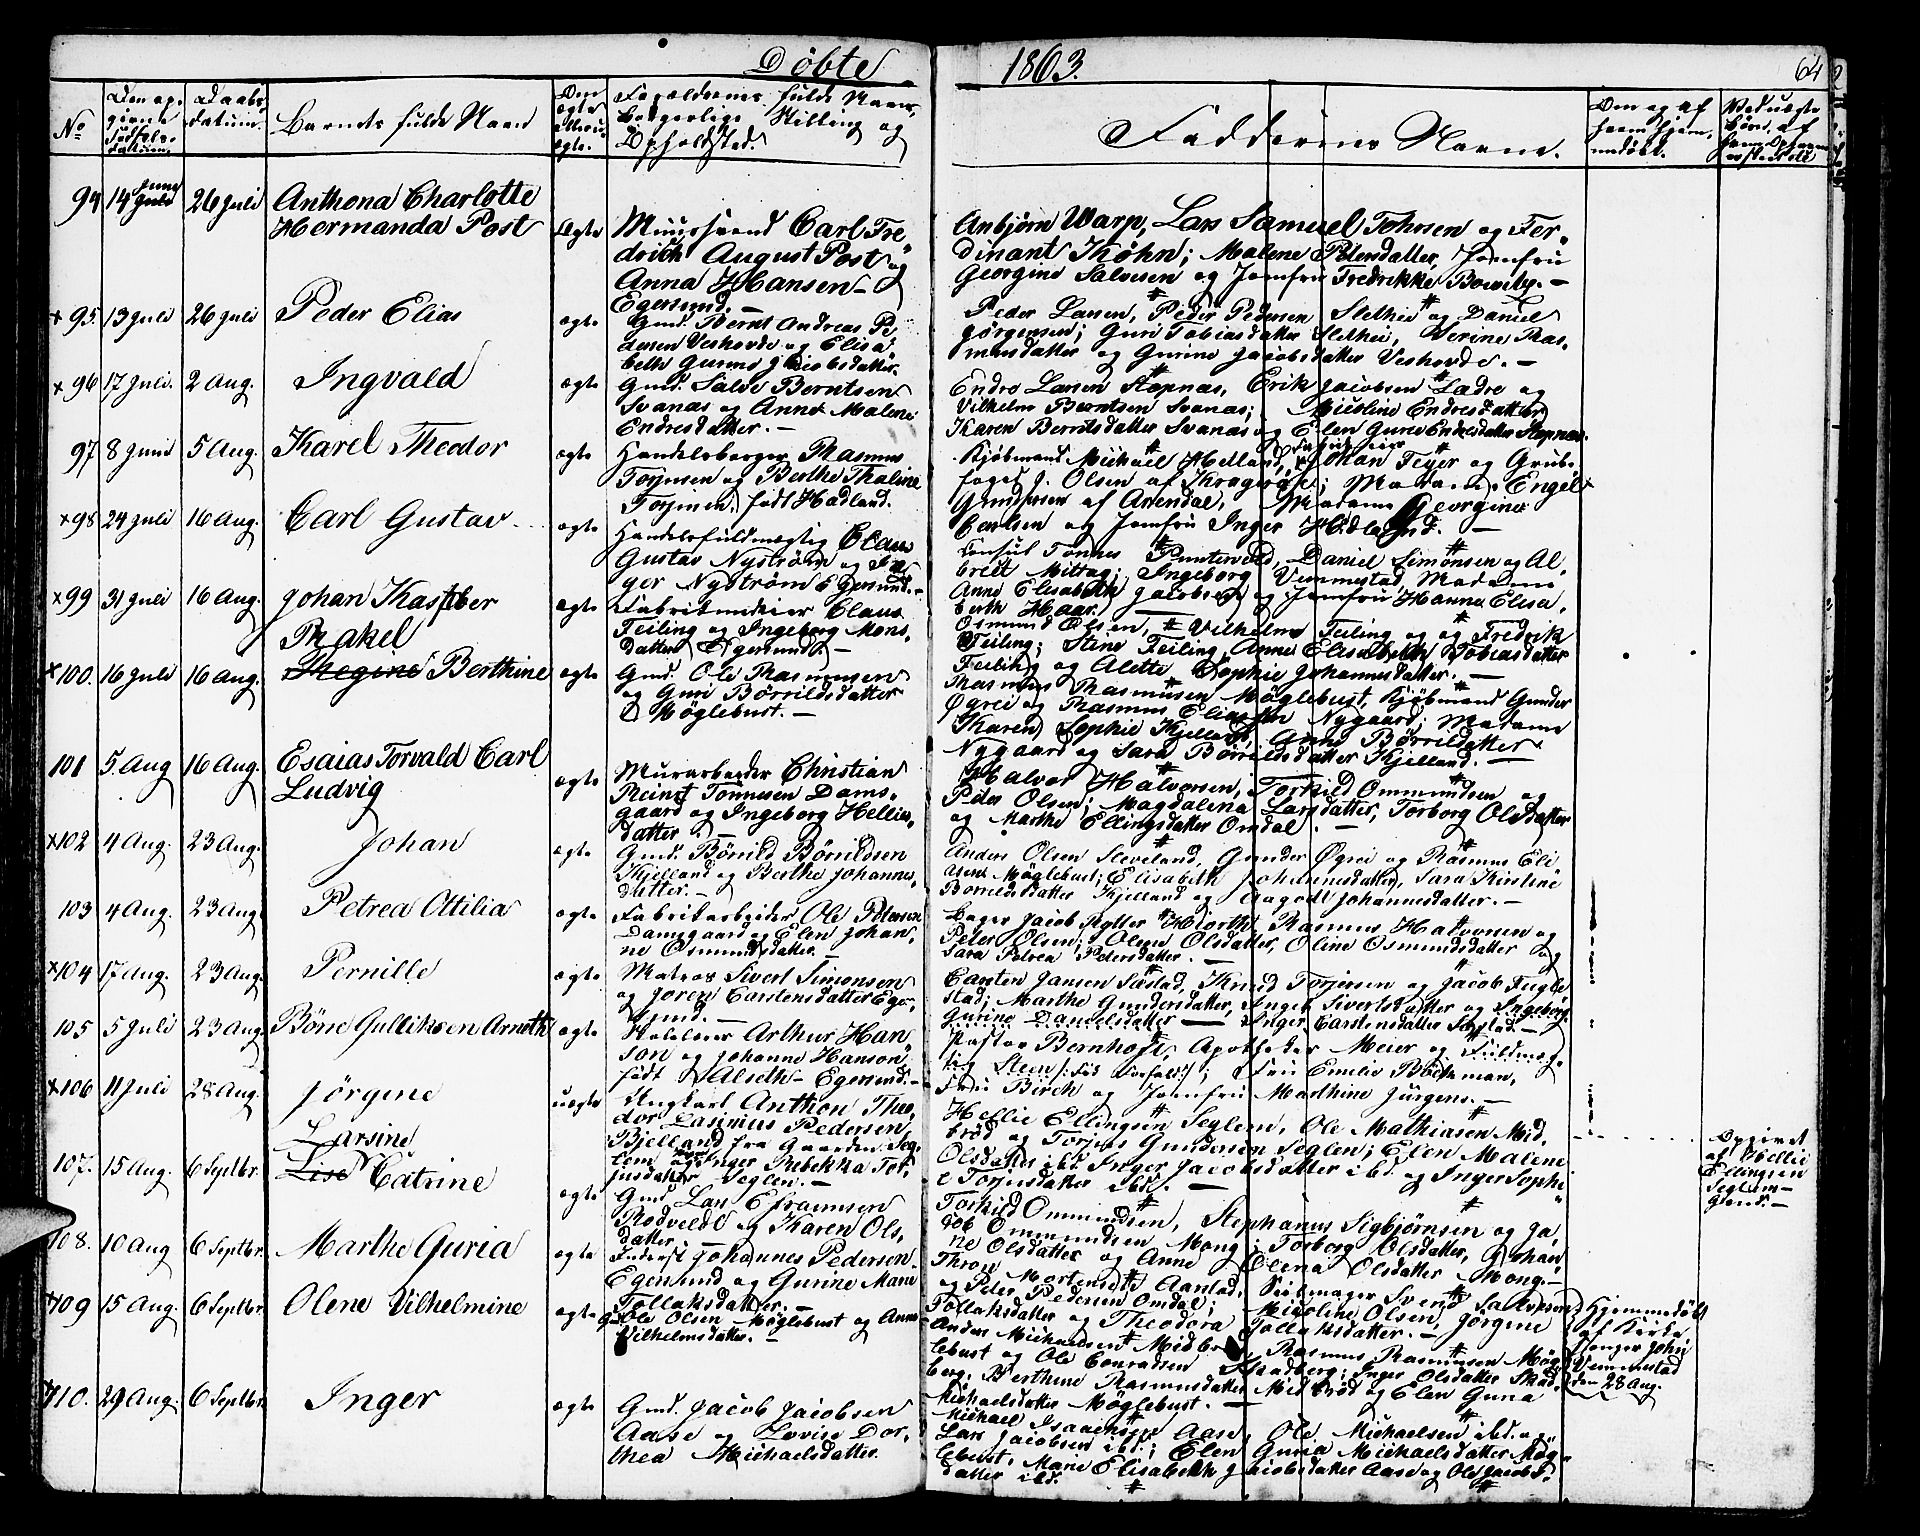 Døbte 1863. 64
No
Barnets fulde Navn
Forældrenes fulde Navn,
Borgerlige Stilling og
Opholdsted.
Faddernes Navne.
94 14 Juni Juli 26 Juli Anthona Charlotte
Hermanda Post Ægte Muursvend Carl Fre-
drich August Post og
Anna Hansen
Egersund.
Anbjørn Warp, Lars Samuel Tohrsen og Fer-
dinant Køhn; Malene Petersdatter, Jomfru
Georgine Salvesen og Jomfru Fredrikke
95. 13 Juli 26 Juli Peder Elias ægte Gmd. Bernt Andreas Pe
dersen Veshovde og Elisa
beth Gurine Jacobsdatter
Peder Larsen, Peder Pedersen Slethei og Daniel
Jørgensen; Guri Tobiasdatter Slethei, Serine Ras-
musdatter og Gurine Jacobsdatter Veshovde.
96 17 Juli. 2 Aug. Ingvald ægte Gmd. Salve Berntsen
Svanæs og Anne Malene
Endresdatter.
Endre Larsen Hopnæs, Erik Jacobsen Lædre og
Vilhelm Berntsen Svanæs; Micoline Endresdatter
Karen Berntsdatter Svanæs og Elen Gurie Endresdatter Hopnæs.
97 8 Juni 5 Aug. Karel Theodor ægte Handelsborger Rasmus
Torjusen og Berthe Thaline
Torjusen, født Hadland.
Kjøbmand Michael Helland, Johan Feyer og Grube-
foged J. Olsen af Kragerø; Madam Engel
Gundersen af Arendal, Madame Georgine
Carlsen og Jomfru Inger Hadland.
98 24 Juli 16 Aug. Carl Gustav ægte Handelsfuldmægtig Claus
Gustav Nystrøm og In
ger Nystrøm Egersund.
Consul Tønnes Puntervold, Daniel Simonsen og Al-
bredt Mittag; Ingeborg Vemmestad, Madame
Anne Elisabeth Jacobsen og Jomfru Hanna Elisa-
beth Haar.
99 31 Juli 16 Aug. Johan Kasper ægte Fabrikmester Claus
Feiling og Ingeborg Mons-
datter Egersund.
Osmund Olsen, Vilhelm Feiling og og Fredrik
Feiling; Stine Feiling, Anne Elisabeth Tobiasdatter
Feiling og Alette Sophie Johannesdatter.
Rakel
100. 16 Juli 16 Aug. Regine Berthine ægte Gmd. Ole Rasmusen
og Guri Børrildsdatter
Møglebust.
Rasmus Rasmusen Møglebust, Kjøbmand Gunder
Øgrei og Rasmus Eliassen Nygaard; Madame
Karen Sophie Kjelland, Anne Børrildatter
Nygaard og Sara Børrildsdatter Kjelland.
101 5 Aug 16 Aug. Esaias Torvald Carl
Ludvig ægte Murarbeider Christian
Reinert Tønnesen Dams-
gaard og Ingeborg Hellies-
datter.
Halvor Halvorsen, Torkild Ommundsen og
Peder Olsen; Magdalena Larsdatter, Torborg Olsdatter
og Marthe Ellingsdatter Omdal.
102 4 Aug. 23 Aug. Johan ægte Gmd. Børrild Børrildsen
Kjelland og Berthe Johannes-
datter.
Anders Olsen Sleveland, Gunder Øgrei og Rasmus Eli
asen Møglebust; Elisabeth Johannesdatter, Sara Kirstine
Børrildsdatter Kjelland og Aagodt Johannesdatter.
103 4 Aug. 23 Aug Petrea Ottilia ægte Fabrikarbeider Ole Petersen
Damsgaard og Elen Johan-
ne Osmundsdatter.
Bager Jacob Rytter Hiorth, Rasmus Halvorsen og
Peter Olsen; Olene Olsdatter, Oline Osmundsdatter og
Sara Petrea Petersdatter.
104 17 Aug. 23 Aug. Pernille ægte Matros Sivert Simonsen
og Joren Carstensdatter Eger-
sund.
Carsten Jansen Sæstad, Knud Torjersen og Jacob Fugle
stad; Marthe Gundersdatter, Inger Sivertsdatter og Ingeborg
Gurine Danielsdatter Inger Carstensdatter Sæstad
105 5 Juli 23 Aug Børre Gulliksen Arneth ægte Arthur Han
son og Johanne Hanson
født Alseth Egersund.
Pastor Bernhoft, Apotheker Meier og Fuldmæg-
tig Steen; Fru Emilie Bøckman,
Fru Birch og Jomfru Marthine Jürgens.
106 11 Juli 28 Aug. Jørgine uægte Ungkarl Anthon Theo-
dor Lasimius Pedersen
Bjelland fra Gaarden Seg-
lem og Inger Rebekka Tor-
jusdatter Seglem.
Hellie Ellingsen Seglem, Ole Mathiasen Mid-
brød og Torjus Gundersen Seglem; Elen Malene
Olsdatter ibd. Inger Jacobsdatter ibd. og Inger Sophi
e Torjusdatter ibd.
Opgivet
af Hellie
Ellingsen
Seglem
Gmd.
Larsine
107. 15 Aug. 6 Septbr. Lise Catrine ægte Gmd. Lars Efraimsen
Rodvelt og Karen Ols-
datter
Torkild Ommundsen, Stephanus Sigbjørnsen og Ja-
cob Ommundsen Mong; Torborg Olsdatter, Johan
ne Olsdatter og Anne Elena Olsdatter Mong.
108. 10 Aug 6 Septbr. Marthe Guria ægte Johannes Pedersen
Egersund og Gurine Marie
Tollaksdatter.
Throne Mortensen Aarstad, Seilmager Svend Salvesen
og Peter Pedersen Omdal; Micoline Olsen, Jørgine
Tollaksdatter og Theodora Tollaksdatter.
109 15 Aug. 6 Septbr. Olene Vilhelmine ægte Gmd. Ole Olsen Møglebust og Anne
Vilhelmsdatter.
Anders Michaelsen Midbrød, Rasmus Rasmusen Møg-
lebust og Ole Conradsen Skadberg; Inger Olsdatter Skad-
berg, Berthine Rasmusdatter Midbrød og Elen Guria
Michaelsdatter Møglebust.
Hjemmedøbt
af Kirke
sanger John
Vemmestad
den 28 Aug.
110. 29 Aug. 6 Septbr. Inger ægte Gmd. Jacob Jacobsen
Aase og Lovise Dor-
thea Michaelsdatter.
Michael Isaachsen Aase, Ole Michaelsen ibd. og
Lars Jacobsen ibd.; Elen Guria Michaelsdatter Møg-
lebust, Marie Elisabeth Jacobsdatter Aase og
datter ibd.